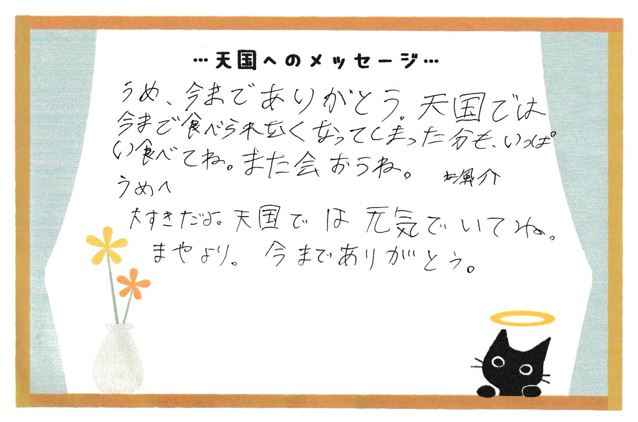 …天国へのメッセージ…
うめ、今までありがとう。天国では
今まで食べられなくなってしまった分も、いっぱ
い食べてね。また会おうね。
うめへ
大すきだよ。天国では元気でいてね。
まやより。今までありがとう。